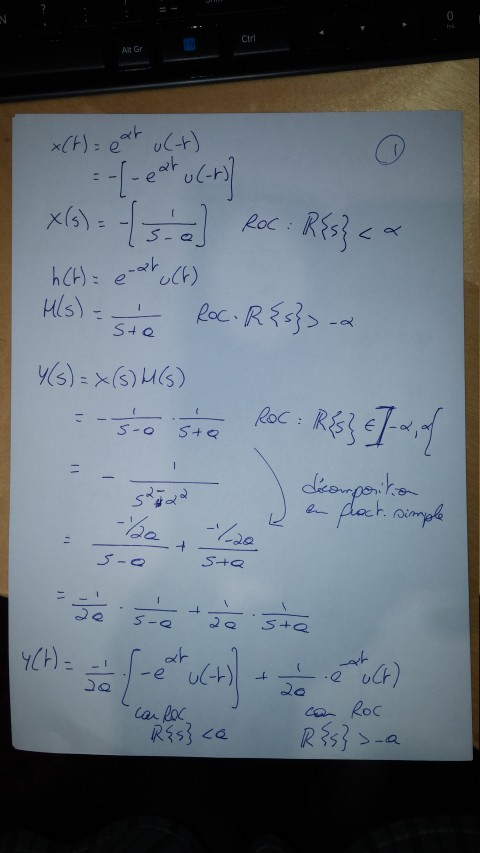 ?
:
!
==
0
Alt Gr
Ctrl
1
x(t) = e^{αt} u(-t)
= -[-e^{αt} u(-t)]
X(s) = -[1/(s-a)] ROC : ℝ{s} < α
h(t) = e^{-αt} u(t)
H(s) = 1/(s+a) ROC : ℝ{s} > -α
Y(s) = X(s) H(s)
= - 1/(s-a) · 1/(s+a) ROC : ℝ{s} ∈ ]-α, α[
= - 1/(s²-α²)
décomposition
en fract. simple
= (-1/2a)/(s-a) + (-1/-2a)/(s+a)
= -1/2a · 1/(s-a) + 1/2a · 1/(s+a)
y(t) = -1/2a · [-e^{αt} u(-t)] + 1/2a · e^{-αt} u(t)
car ROC
ℝ{s} < a
car ROC
ℝ{s} > -a